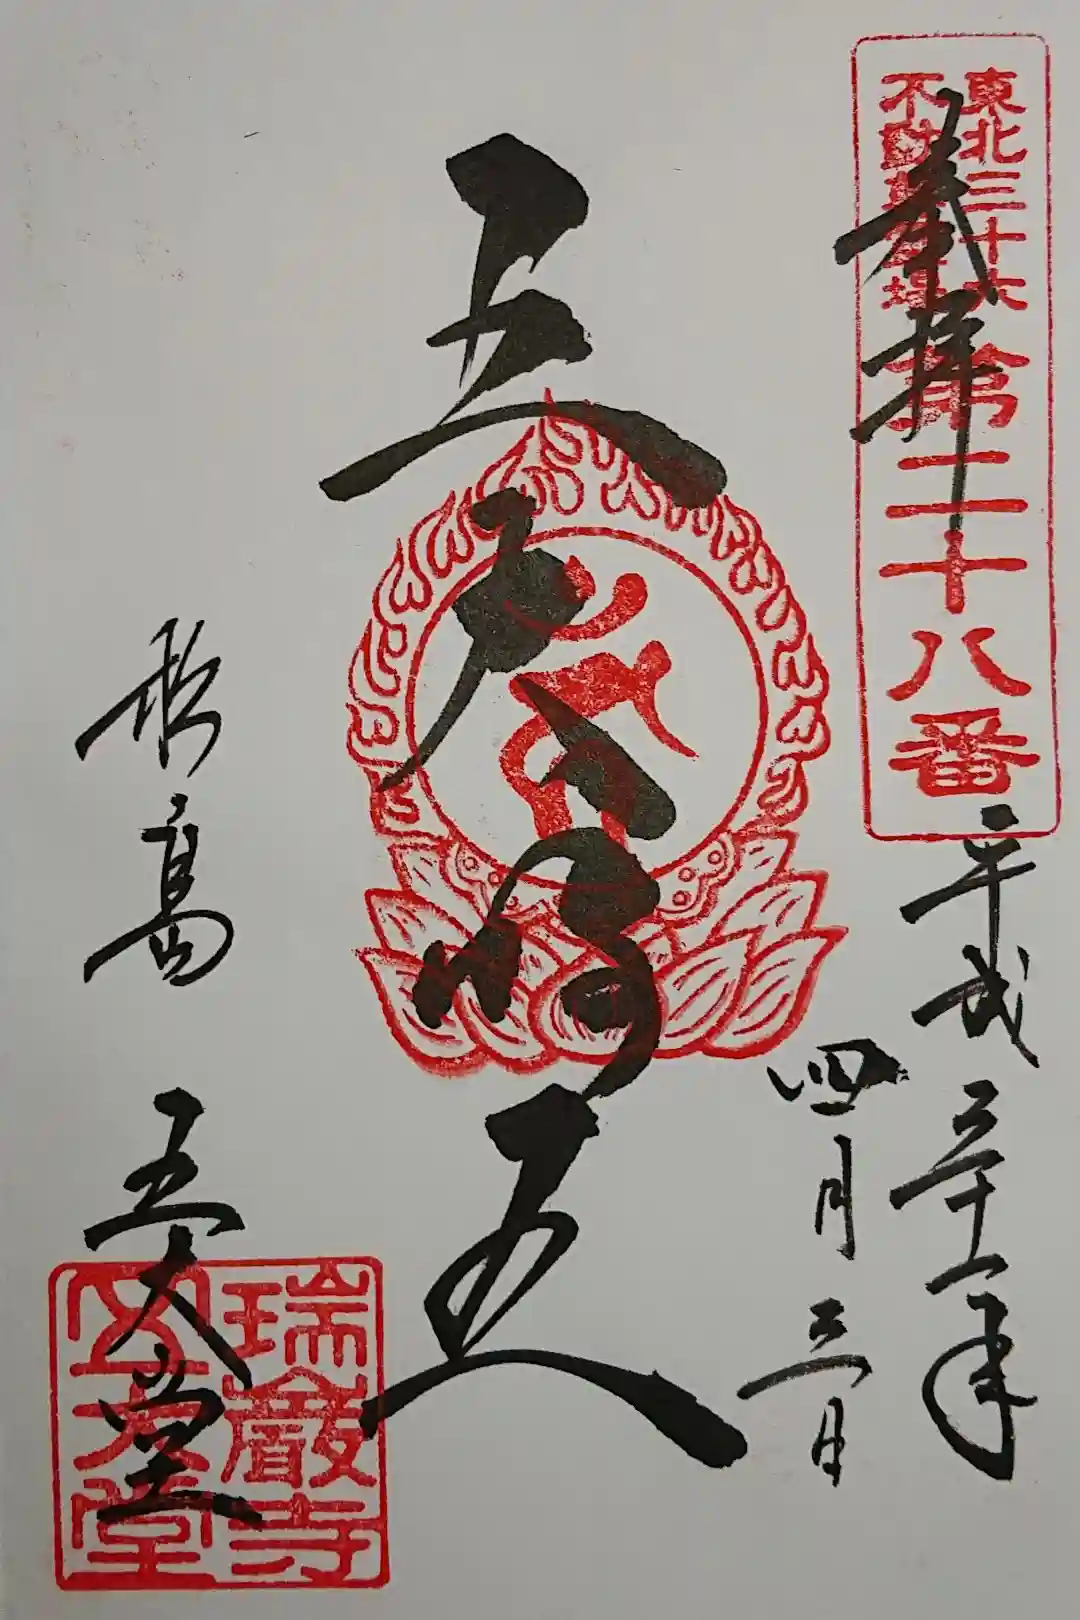 東北三十六
不動尊霊場
第二十八番
奉拝
平成三十一年
四月三日
五大明王
松島 五大堂
瑞巌寺
五大堂